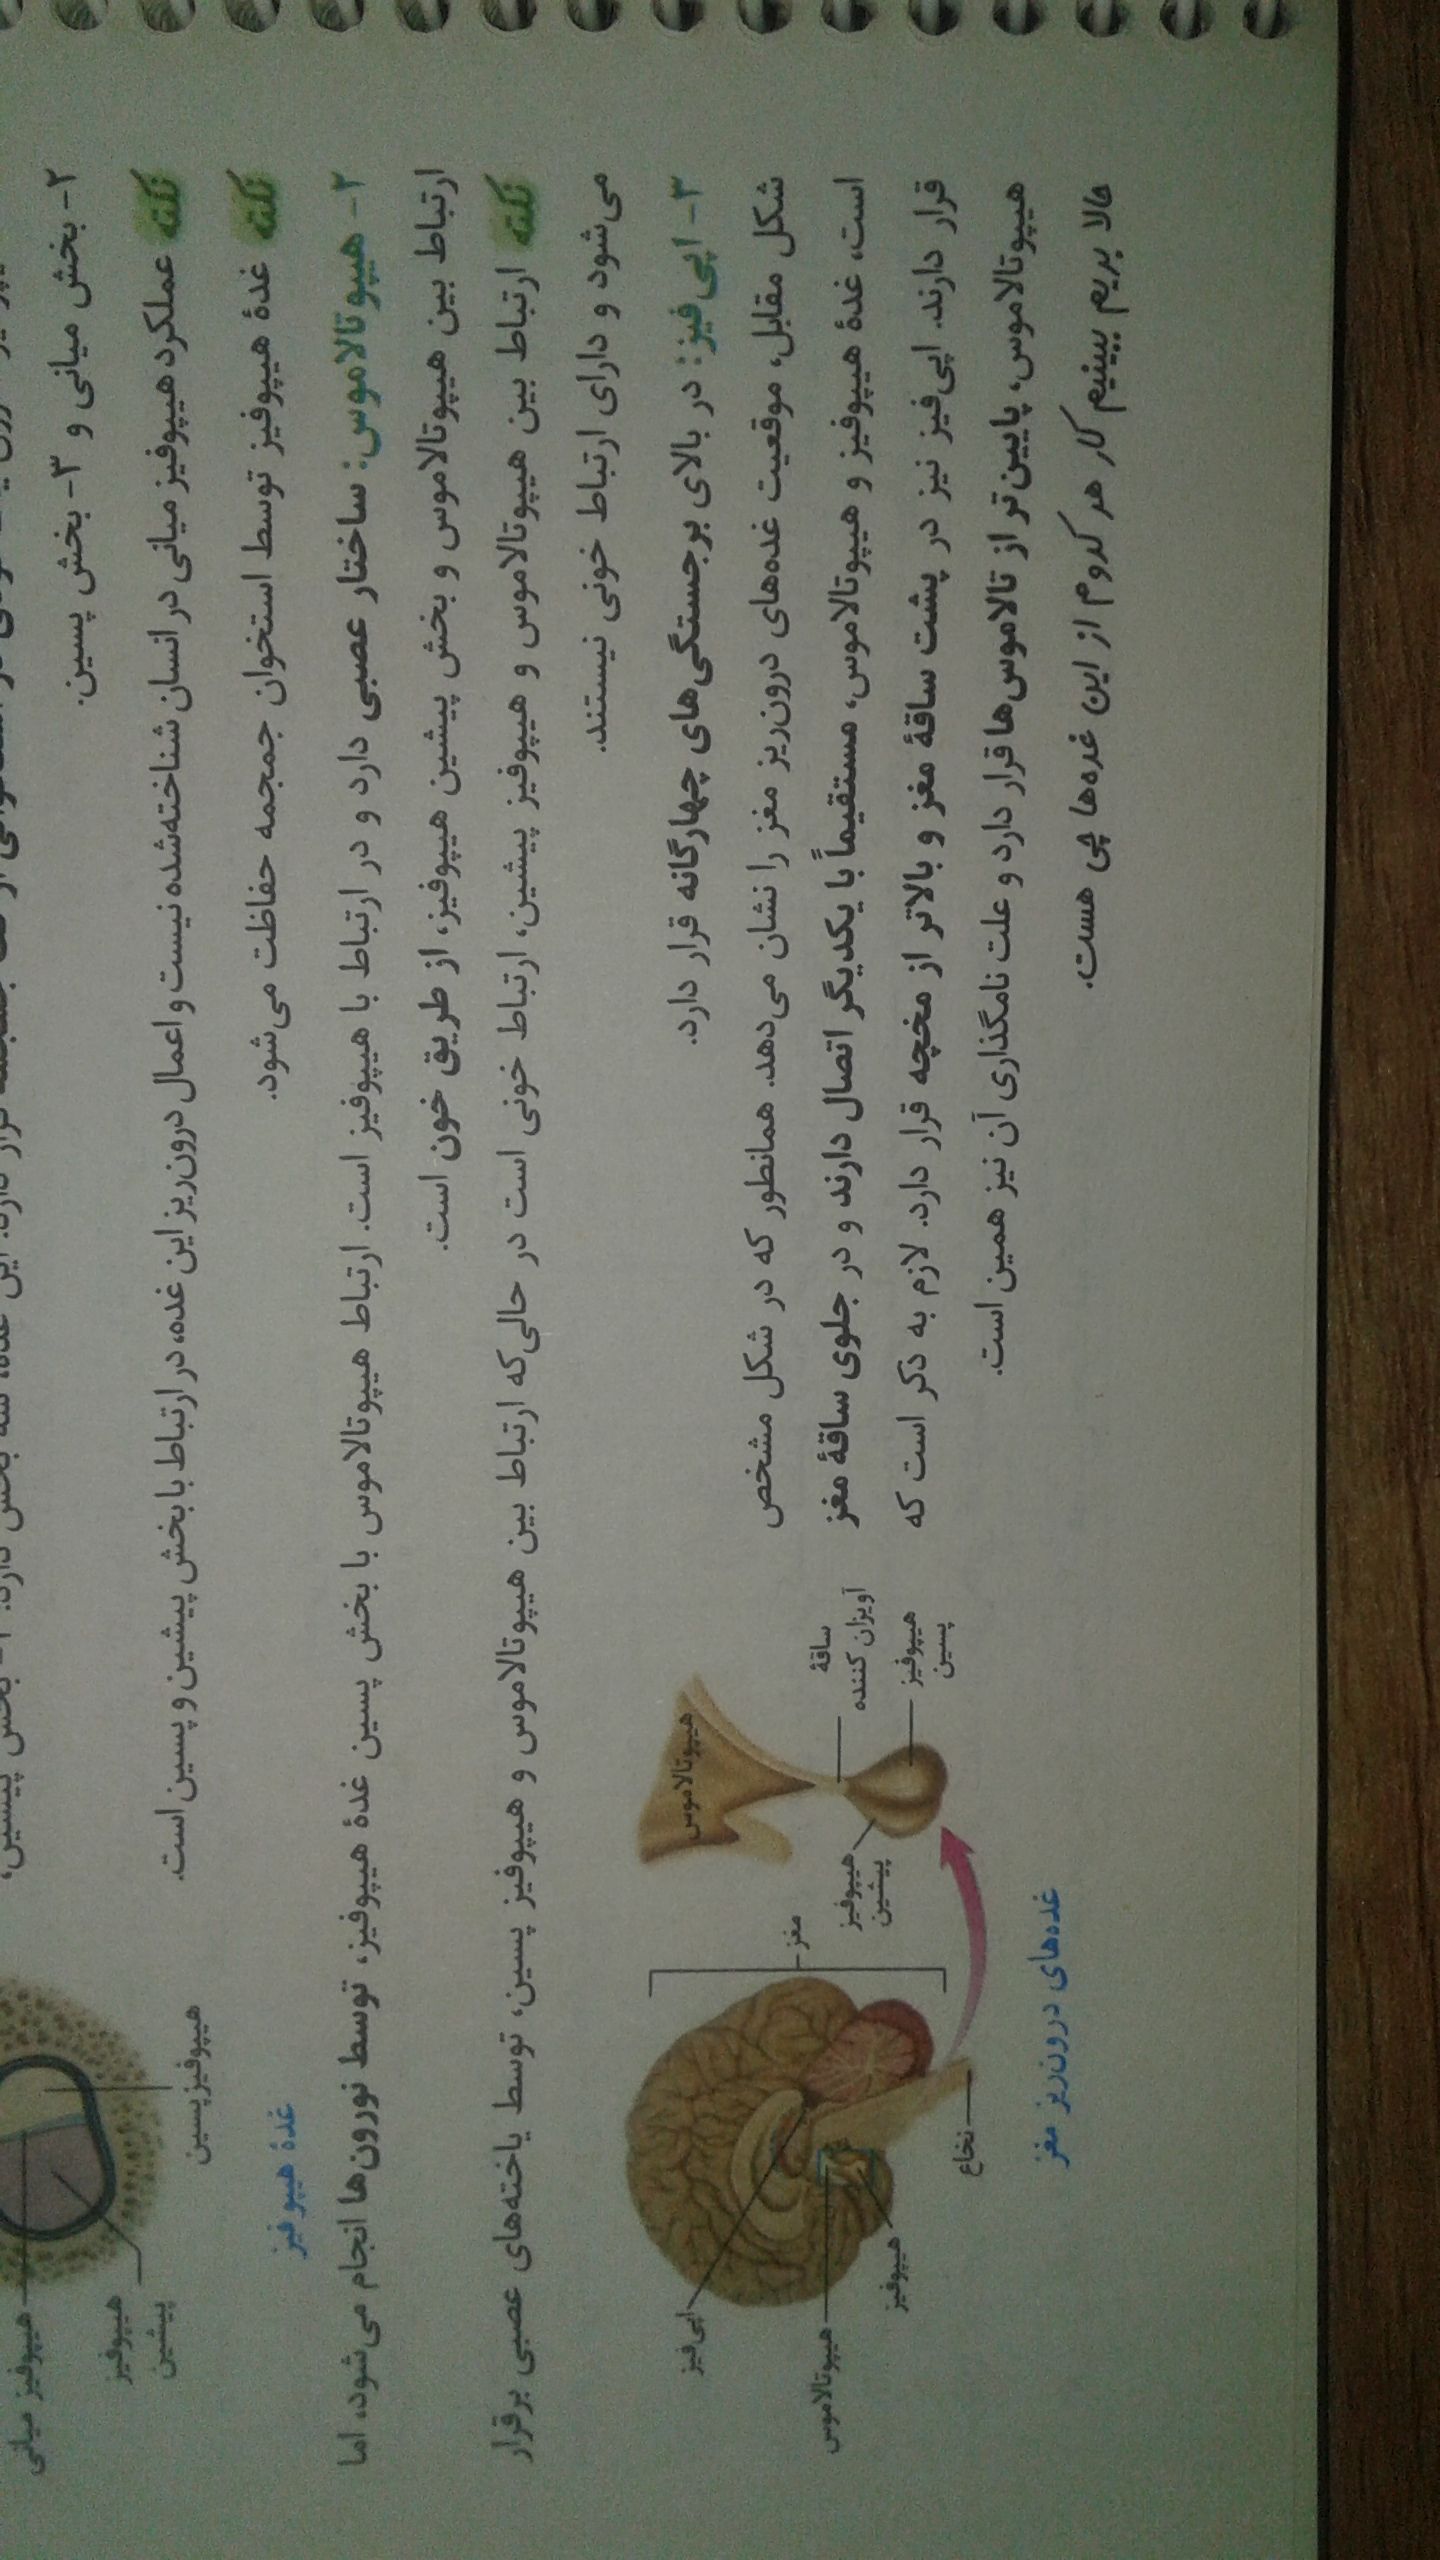 ۲- بخش میانی و ۳- بخش پسین.
نکته عملکرد هیپوفیز میانی در انسان شناخته‌شده نیست و اعمال درون‌ریز این غده، در ارتباط با بخش پیشین و پسین است.
نکته غدۀ هیپوفیز توسط استخوان جمجمه حفاظت می‌شود.
هیپوفیز میانی
هیپوفیز
پیشین
هیپوفیز پسین
غدۀ هیپوفیز
۲- هیپوتالاموس: ساختار عصبی دارد و در ارتباط با هیپوفیز است. ارتباط هیپوتالاموس با بخش پسین غدۀ هیپوفیز، توسط نورون‌ها انجام می‌شود، اما
ارتباط بین هیپوتالاموس و بخش پیشین هیپوفیز، از طریق خون است.
نکته ارتباط بین هیپوتالاموس و هیپوفیز پیشین، ارتباط خونی است در حالی‌که ارتباط بین هیپوتالاموس و هیپوفیز پسین، توسط یاخته‌های عصبی برقرار
می‌شود و دارای ارتباط خونی نیستند.
۳- اپی‌فیز: در بالای برجستگی‌های چهارگانه قرار دارد.
شکل مقابل، موقعیت غده‌های درون‌ریز مغز را نشان می‌دهد. همانطور که در شکل مشخص
است، غدۀ هیپوفیز و هیپوتالاموس، مستقیماً با یکدیگر اتصال دارند و در جلوی ساقۀ مغز
قرار دارند. اپی‌فیز نیز در پشت ساقۀ مغز و بالاتر از مخچه قرار دارد. لازم به ذکر است که
هیپوتالاموس، پایین‌تر از تالاموس‌ها قرار دارد و علت نامگذاری آن نیز همین است.
حالا بریم ببینیم کار هر کدوم از این غده‌ها چی هست.
هیپوتالاموس
ساقۀ
آویزان کننده
هیپوفیز
پسین
هیپوفیز
پیشین
مغز
اپی‌فیز
هیپوتالاموس
هیپوفیز
نخاع
غده‌های درون‌ریز مغز